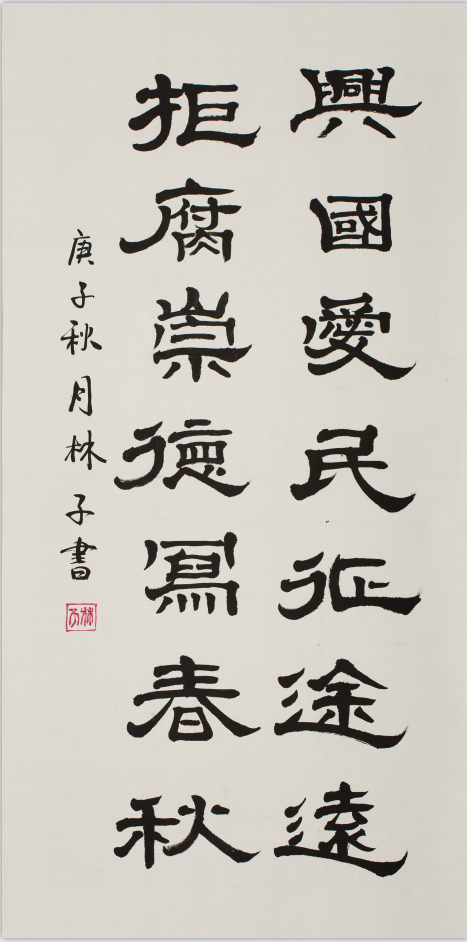 興國愛民征途遠
拒腐崇德寫春秋
庚子秋月林子書
林子